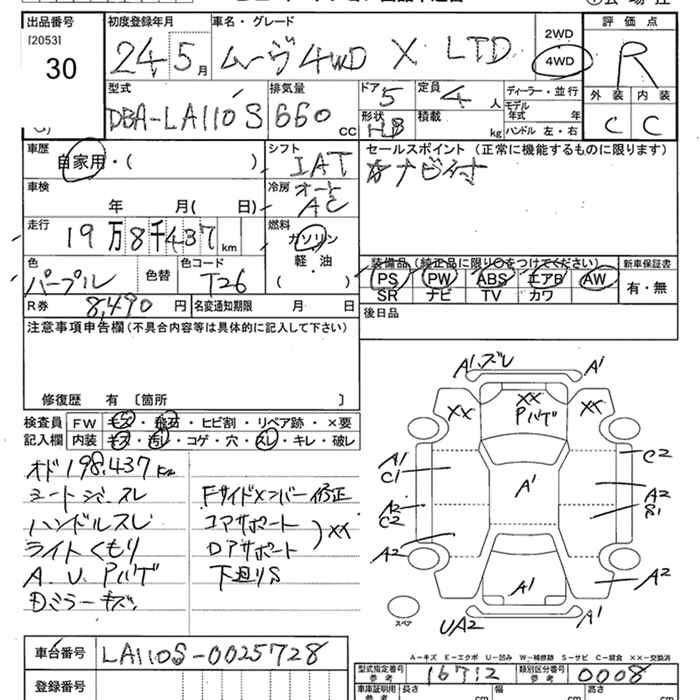 出品番号 初度登録年月 車名・グレード
[2053]
30
24 5月 ムーヴ 4WD X LTD
2WD
4WD
評価点
R
外装 内装
C C
型式 排気量
DBA-LA110S 660 cc
ドア 定員 ディーラー・並行
5 4 人
モデル年式 年
形状 積載 ハンドル 左・右
HB kg
車歴 自家用・( )
シフト
IAT
セールスポイント (正常に機能するものに限ります)
☆ナビ付
車検 年 月( 日)
冷房 オート
AC
走行
19万8千437km
燃料
ガソリン
軽・油
( )
色 色替 色コード
パープル T26
装備品 (純正品に限り○をつけてください) 新車保証書
PS PW ABS エアB AW
SR ナビ TV カワ
有・無
R券 8,490円 名変通知期限 月 日
後日品
注意事項申告欄 (不具合内容等は具体的に記入して下さい)
修復歴 有 〔箇所 〕
検査員 FW キズ・飛石・ヒビ割・リペア跡・×要
記入欄 内装 キズ・汚レ・コゲ・穴・スレ・キレ・破レ
オド 198,437 km
シートシミ、スレ
ハンドルスレ Fサイドメンバー修正
ライトくもり コアサポート
A.U.Pハゲ ロアサポート )××
Dミラーキズ 下廻りS
A1、ズレ A1
×× ×× ××
Pハゲ
A1 C2
C1 A1 A2
A2 S1
C2
A2 A2
A1
UA2 A1
スペア
A-キズ E-エクボ U-凹み W-補修跡 S-サビ C-腐食 ××-交換済
車台番号 LA110S-0025728
登録番号
型式指定番号 16712 類別区分番号 0008
参考 参考
車庫証明用 長さ 幅 高さ
cm cm cm